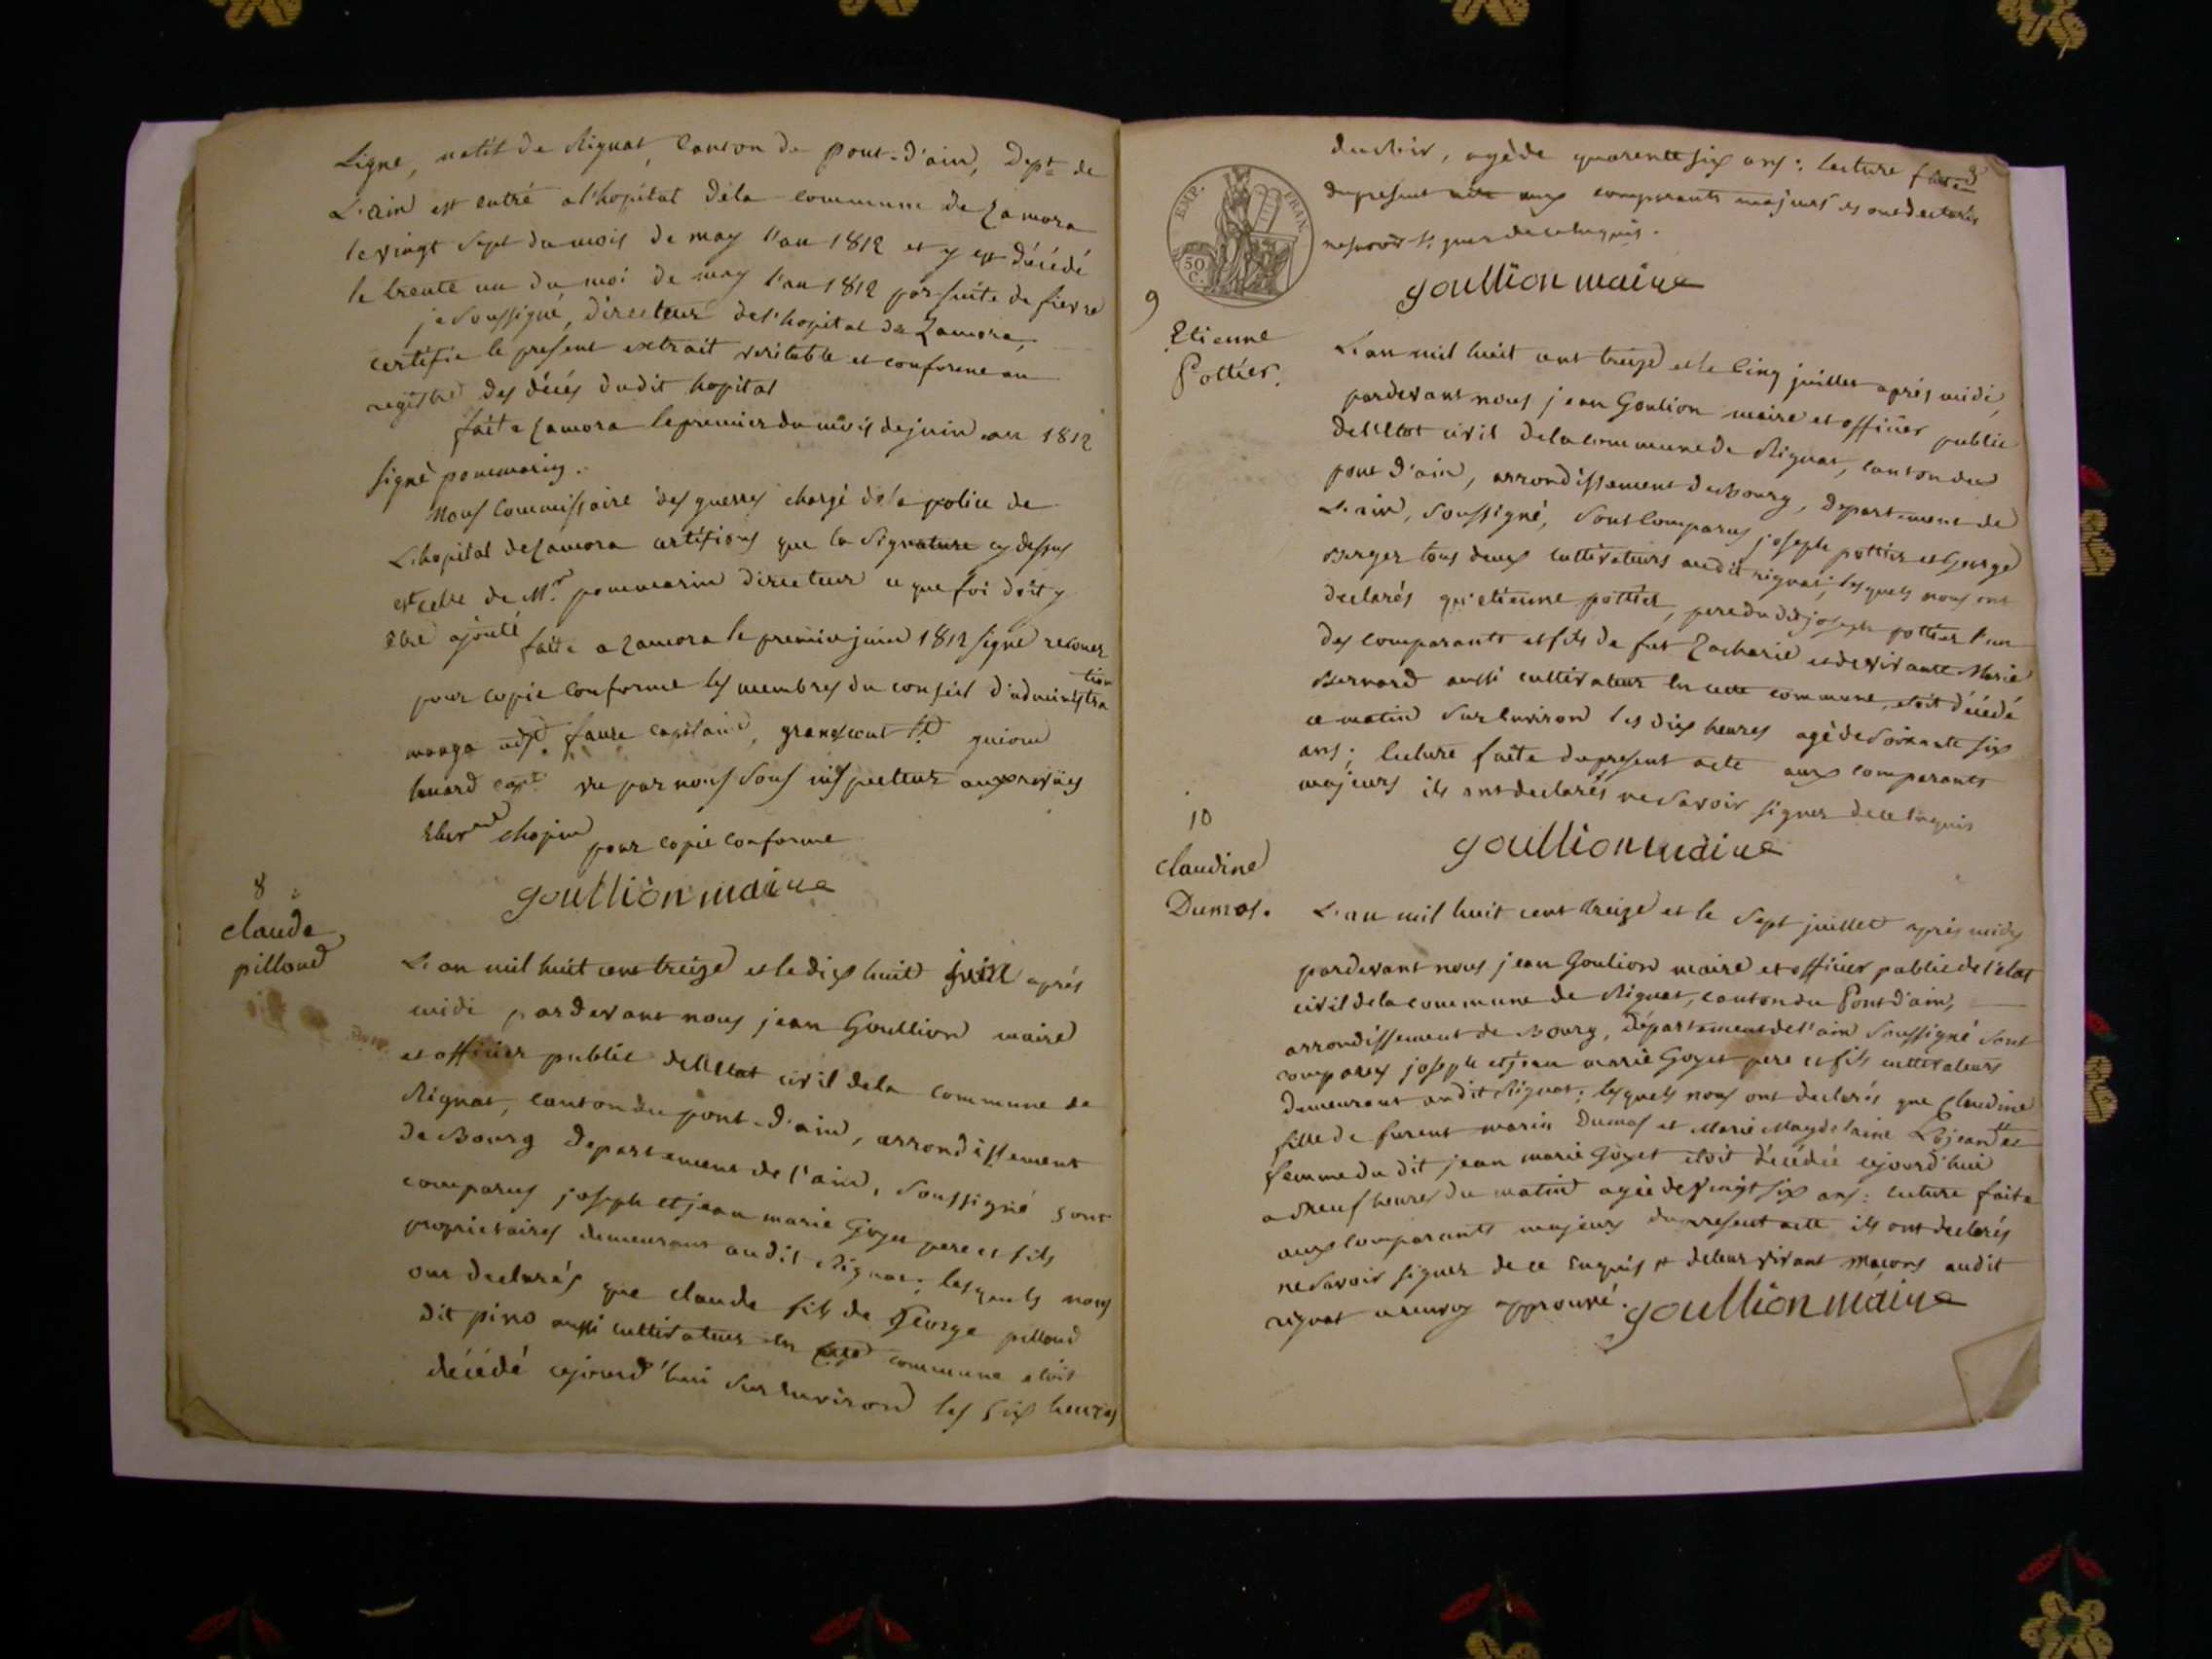 Ligne, natif de Rignat, Canton de pont-d'ain, Dept de
L'ain est entré a l'hopital dela commune de Zamora
le vingt sept du mois de may l'an 1812 et y est décédé
le trente un du moi de may l'an 1812 par suite de fievre
je soussigné, directeur de l'hopital de Zamora,
certifie le present extrait veritable et conforme au
registre des décés dudit hopital
fait a Zamora le premier du mois de juin an 1812
signé pommarin.
Nous Commissaire des guerres chargé dela police de
L'hopital de Zamora certifions que la signature cy dessus
est celle de Mr pommarin directeur ce que foi doit y
etre ajouté
fait a Zamora le premier juin 1812 signé
pour copie conforme les membres du conseil d'administra
tion
faure capitaine,
huard capt vu par nous sous inspecteur aux revues
chopin
pour copie conforme
Goullion maire
8
claude
pilloud
L'an mil huit cent treize et le dix huit juin aprés
midi pardevant nous jean Goullion maire
et officier public de l'etat civil dela commune de
Rignat, canton du pont-d'ain, arrondissement
de Bourg departement de l'ain, soussigné sont
comparus joseph et jean marie Goyet pere et fils
proprietaires demeurant audit Rignat; lesquels nous
ont declarés que claude fils de George pilloud
dit piro aussi cultivateur en cette commune etoit
décédé cejourd'hui sur environ les six heures
EMP. FRAN.
50
C.
du soir, agé de quarente six ans: lecture faite
du present acte aux comparants majeurs ils ont declarés
ne savoir signer de ce enquis.
Goullion maire
9
Etienne
Pottier.
L'an mil huit cent treize et le cinq juillet aprés midi,
pardevant nous jean Goulion maire et officier public
de l'etat civil dela commune de Rignat, canton de
pont d'ain, arrondissement de Bourg, departement de
L'ain, soussigné, sont comparus joseph pottier et George
Berger tous deux cultivateurs audit rignat; lesquels nous ont
declarés qu'etienne pottier, pere du dit joseph pottier l'un
des comparants et fils de fut Zacharie et de vivante Marie
Bernard aussi cultivateur en cette commune, etoit décédé
ce matin sur environ les dix heures agé de soixante six
ans; lecture faite du present acte aux comparants
majeurs ils ont declarés ne savoir signer de ce enquis
Goullion maire
10
claudine
Dumas.
L'an mil huit cent treize et le sept juillet aprés midy
pardevant nous jean Goulion maire et officier public de l'etat
civil dela commune de Rignat, canton du Pont d'ain,
arrondissement de Bourg, département de l'ain soussigné sont
comparus joseph et jean marie Goyet pere et fils cultivateurs
demeurant audit Rignat; lesquels nous ont declarés que Claudine
fille de furent marin Dumas et Marie Magdelaine Lojean et
femme du dit jean marie Goyet etoit décédée cejourd'hui
a neuf heures du matin agée de vingt six ans: lecture faite
aux comparants majeurs du present acte ils ont declarés
ne savoir signer de ce enquis # de leur vivant maçons audit
rignat ce renvoy approuvé. Goullion maire